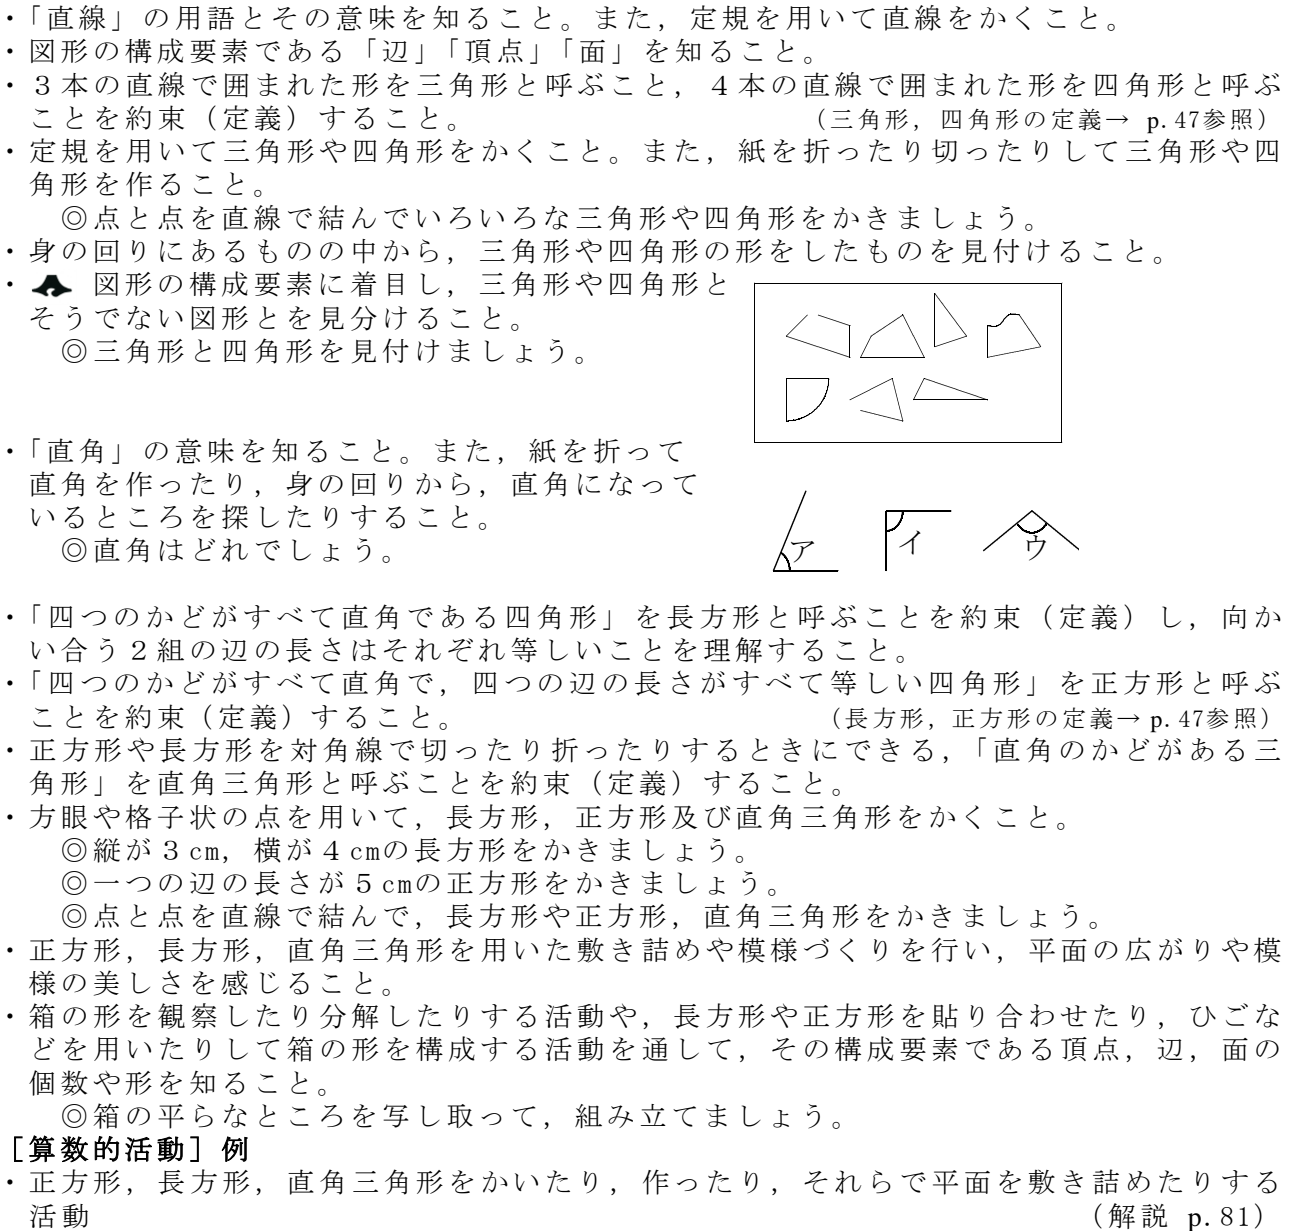 ・「直線」の用語とその意味を知ること。また，定規を用いて直線をかくこと。
・図形の構成要素である「辺」「頂点」「面」を知ること。
・３本の直線で囲まれた形を三角形と呼ぶこと，４本の直線で囲まれた形を四角形と呼ぶ
ことを約束（定義）すること。（三角形，四角形の定義→ p.47参照）
・定規を用いて三角形や四角形をかくこと。また，紙を折ったり切ったりして三角形や四
角形を作ること。
◎点と点を直線で結んでいろいろな三角形や四角形をかきましょう。
・身の回りにあるものの中から，三角形や四角形の形をしたものを見付けること。
・図形の構成要素に着目し，三角形や四角形と
そうでない図形とを見分けること。
◎三角形と四角形を見付けましょう。
・「直角」の意味を知ること。また，紙を折って
直角を作ったり，身の回りから，直角になって
いるところを探したりすること。
◎直角はどれでしょう。
ア イ ウ
・「四つのかどがすべて直角である四角形」を長方形と呼ぶことを約束（定義）し，向か
い合う２組の辺の長さはそれぞれ等しいことを理解すること。
・「四つのかどがすべて直角で，四つの辺の長さがすべて等しい四角形」を正方形と呼ぶ
ことを約束（定義）すること。（長方形，正方形の定義→ p.47参照）
・正方形や長方形を対角線で切ったり折ったりするときにできる，「直角のかどがある三
角形」を直角三角形と呼ぶことを約束（定義）すること。
・方眼や格子状の点を用いて，長方形，正方形及び直角三角形をかくこと。
◎縦が３cm，横が４cmの長方形をかきましょう。
◎一つの辺の長さが５cmの正方形をかきましょう。
◎点と点を直線で結んで，長方形や正方形，直角三角形をかきましょう。
・正方形，長方形，直角三角形を用いた敷き詰めや模様づくりを行い，平面の広がりや模
様の美しさを感じること。
・箱の形を観察したり分解したりする活動や，長方形や正方形を貼り合わせたり，ひごな
どを用いたりして箱の形を構成する活動を通して，その構成要素である頂点，辺，面の
個数や形を知ること。
◎箱の平らなところを写し取って，組み立てましょう。
［算数的活動］例
・正方形，長方形，直角三角形をかいたり，作ったり，それらで平面を敷き詰めたりする
活動（解説 p.81）